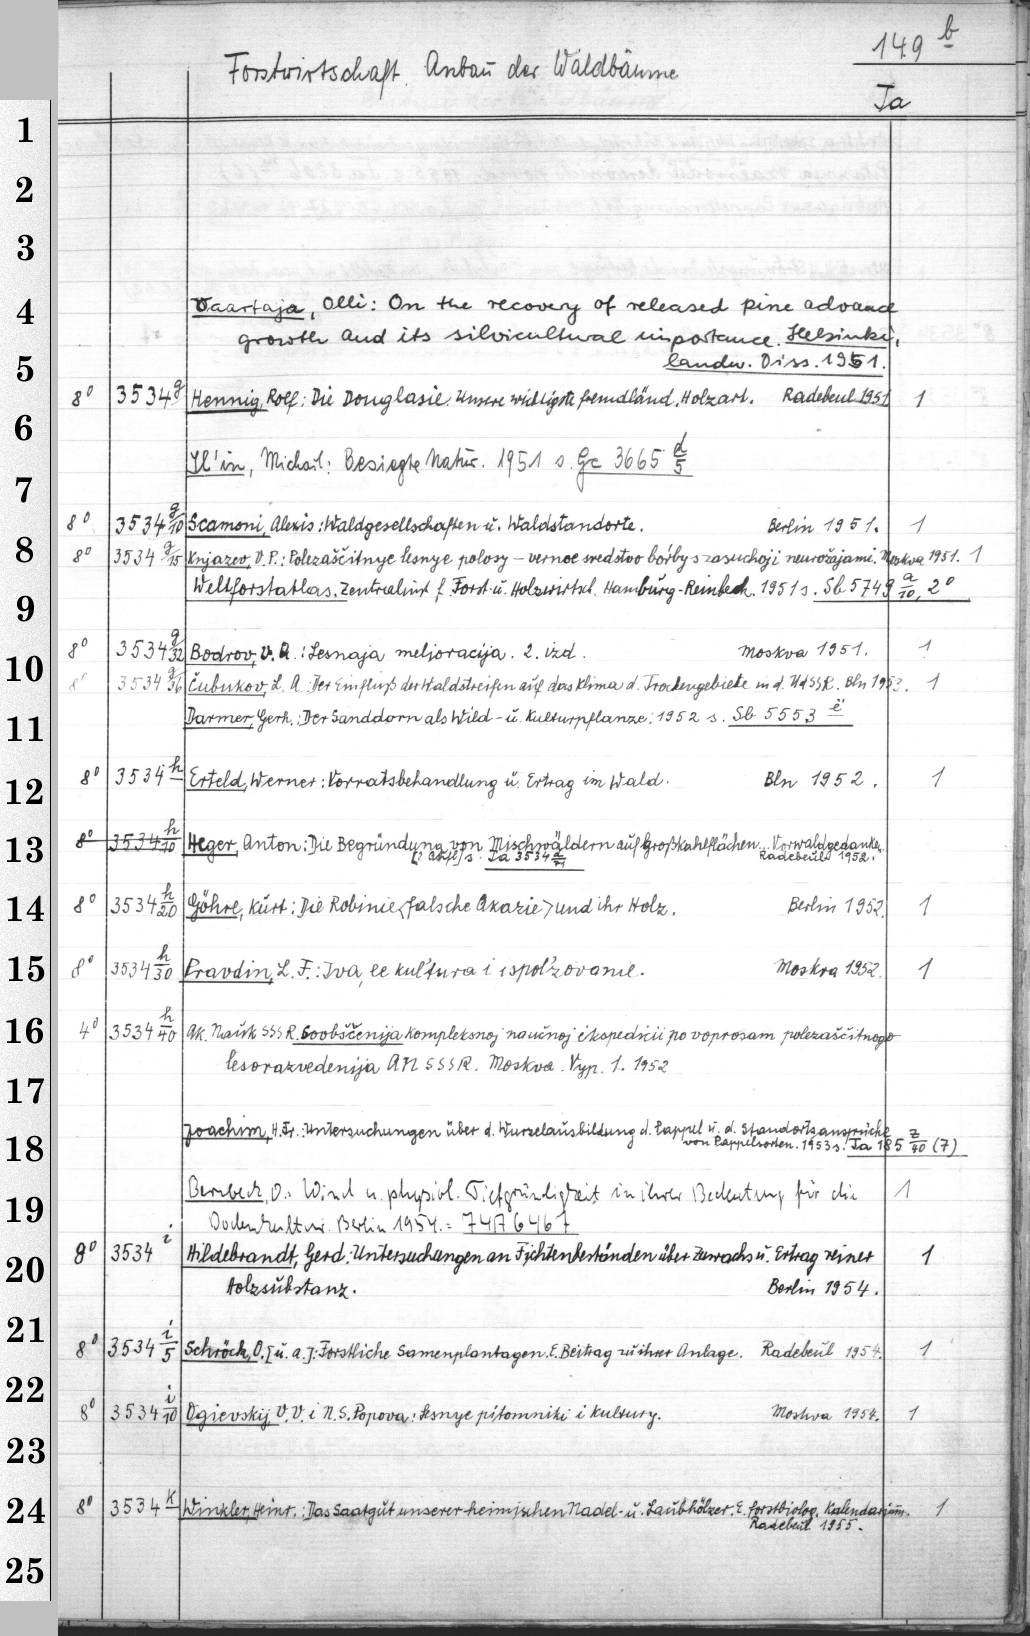 149 b
Forstwirtschaft. Anbau der Waldbäume
Ja
1
2
3
4
Vaartaja, Olli: On the recovery of released pine advance
growth and its silvicultural importance. Helsinki,
5
landw. Diss. 1951.
8° 3534 g Hennig, Rolf: Die Douglasie. Unsere wichtigste fremdländ. Holzart. Radebeul 1951 1
6
Il'in, Michail: Besiegte Natur. 1951 s. Gc 3665 d/5
7
8° 3534 g/10 Scamoni, Alexis: Waldgesellschaften u. Waldstandorte. Berlin 1951. 1
8
8° 3534 g/15 Knjazev, V. P.: Polezaščitnye lesnye polosy – vernoe sredstvo bor'by s zasuchoj i neurožajami. Moskva 1951. 1
Weltforstatlas. Zentralinst f. Forst- u. Holzwirtsch. Hamburg-Reinbek. 1951 s. Sb 5749 a/10, 2°
9
8° 3534 g/32 Bodrov, V. A.: Lesnaja melioracija. 2. izd. Moskva 1951. 1
10
8° 3534 g/36 Čubukov, L. A.: Der Einfluß der Waldstreifen auf das Klima d. Trockengebiete in d. UdSSR. Bln 1952. 1
11
Darmer, Gerh.: Der Sanddorn als Wild- u. Kulturpflanze: 1952 s. Sb 5553 ë
12
8° 3534 h Erteld, Werner: Vorratsbehandlung u. Ertrag im Wald. Bln 1952. 1
13
8° 3534 h/10 Heger, Anton: Die Begründung von Mischwäldern auf Großkahlflächen. Vorwaldgedanken.
Radebeul 1952.
s. Ja 3534 a/71
14
8° 3534 h/20 Göhre, Kurt: Die Robinie <falsche Akazie> und ihr Holz. Berlin 1952. 1
15
8° 3534 h/30 Pravdin, L. F.: Iva, ee kul'tura i ispol'zovanie. Moskva 1952. 1
16
4° 3534 h/40 Ak. Nauk SSSR. Soobščenija kompleksnoj naučnoj ėkspedicii po voprosam polezaščitnogo
lesorazvedenija AN SSSR. Moskva. Vyp. 1. 1952
17
18
Joachim, H. Fr.: Untersuchungen über d. Wurzelausbildung d. Pappel u. d. Standortsansprüche
von Pappelsorten. 1953 s. Ja 185 z/40 (7)
19
Bernbeck, O.: Wind u. physiol. Tiefgründigkeit in ihrer Bedeutung für die 1
Bodenkultur. Berlin 1954. = 74A6467
20
8° 3534 i Hildebrandt, Gerd: Untersuchungen an Fichtenbeständen über Zuwachs u. Ertrag reiner 1
Holzsubstanz. Berlin 1954.
21
8° 3534 i/5 Schröck, O. [u. a.]: Forstliche Samenplantagen. E. Beitrag zu ihrer Anlage. Radebeul 1954. 1
22
8° 3534 i/10 Ogievskij V. V. i N. S. Popova: Lesnye pitomniki i kultury. Moskva 1954. 1
23
24
8° 3534 k Winkler, Heinr.: Das Saatgut unserer heimischen Nadel- u. Laubhölzer. E. forstbiolog. Kalendarium. 1
Radebeul 1955.
25